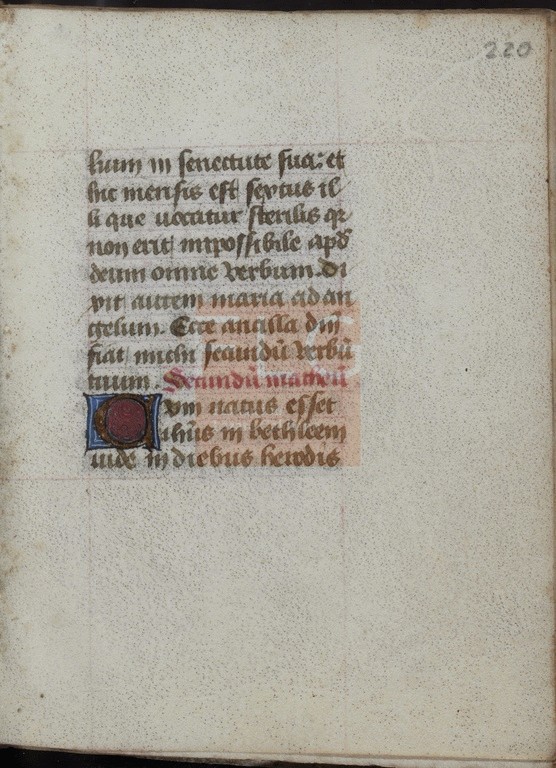 220
lium in senectute sua: et
hic mensis est sextus il
li que vocatur sterilis qr
non erit impossibile apd̄
deum omne verbum. Di
xit autem maria ad an
gelum. Ecce ancilla dn̄i
fiat michi secundū verbū
tuum. Secundū matheū
Cum natus esset
ihūs in bethleem
iude in diebus herodis